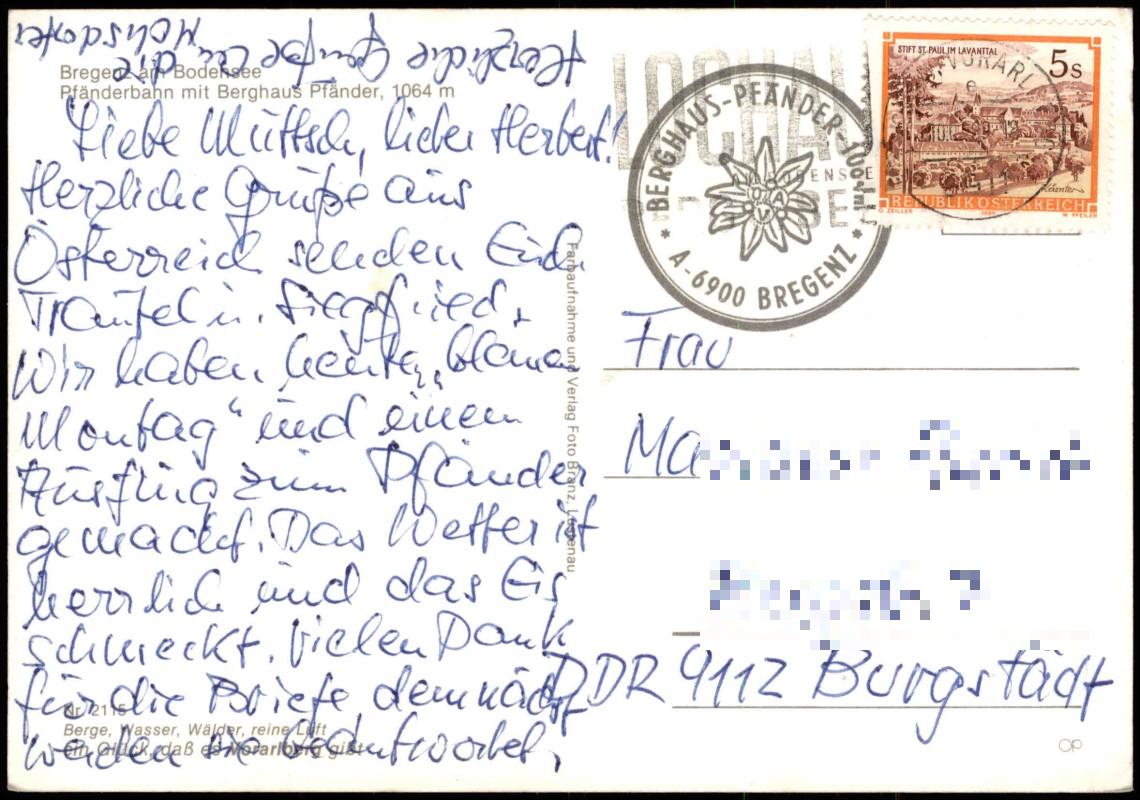 Herzliche Grüße an die
Mohsdorfer
Bregenz am Bodensee
Pfänderbahn mit Berghaus Pfänder, 1064 m
Liebe Muttsch, lieber Herbert!
Herzliche Grüße aus
Österreich senden Euch
Traudel u. Siegfried.
Wir haben heute „blauen
Montag“ und einen
Ausflug zum Pfänder
gemacht. Das Wetter ist
herrlich und das Eis
schmeckt. Vielen Dank
für die Briefe, demnächst
werden sie beantwortet.
Nr. 2115
Berge, Wasser, Wälder, reine Luft
ein Glück, daß es Vorarlberg gibt
Farbaufnahme und Verlag Foto Branz, Lustenau
LOCHAU
AM BODENSEE
BERGHAUS-PFÄNDER-1064m
* A-6900 BREGENZ *
STIFT ST. PAUL IM LAVANTTAL
5s
REPUBLIK ÖSTERREICH
O. ZEILLER
W. PFEILER
Frau
Ma
DDR 9112 Burgstädt